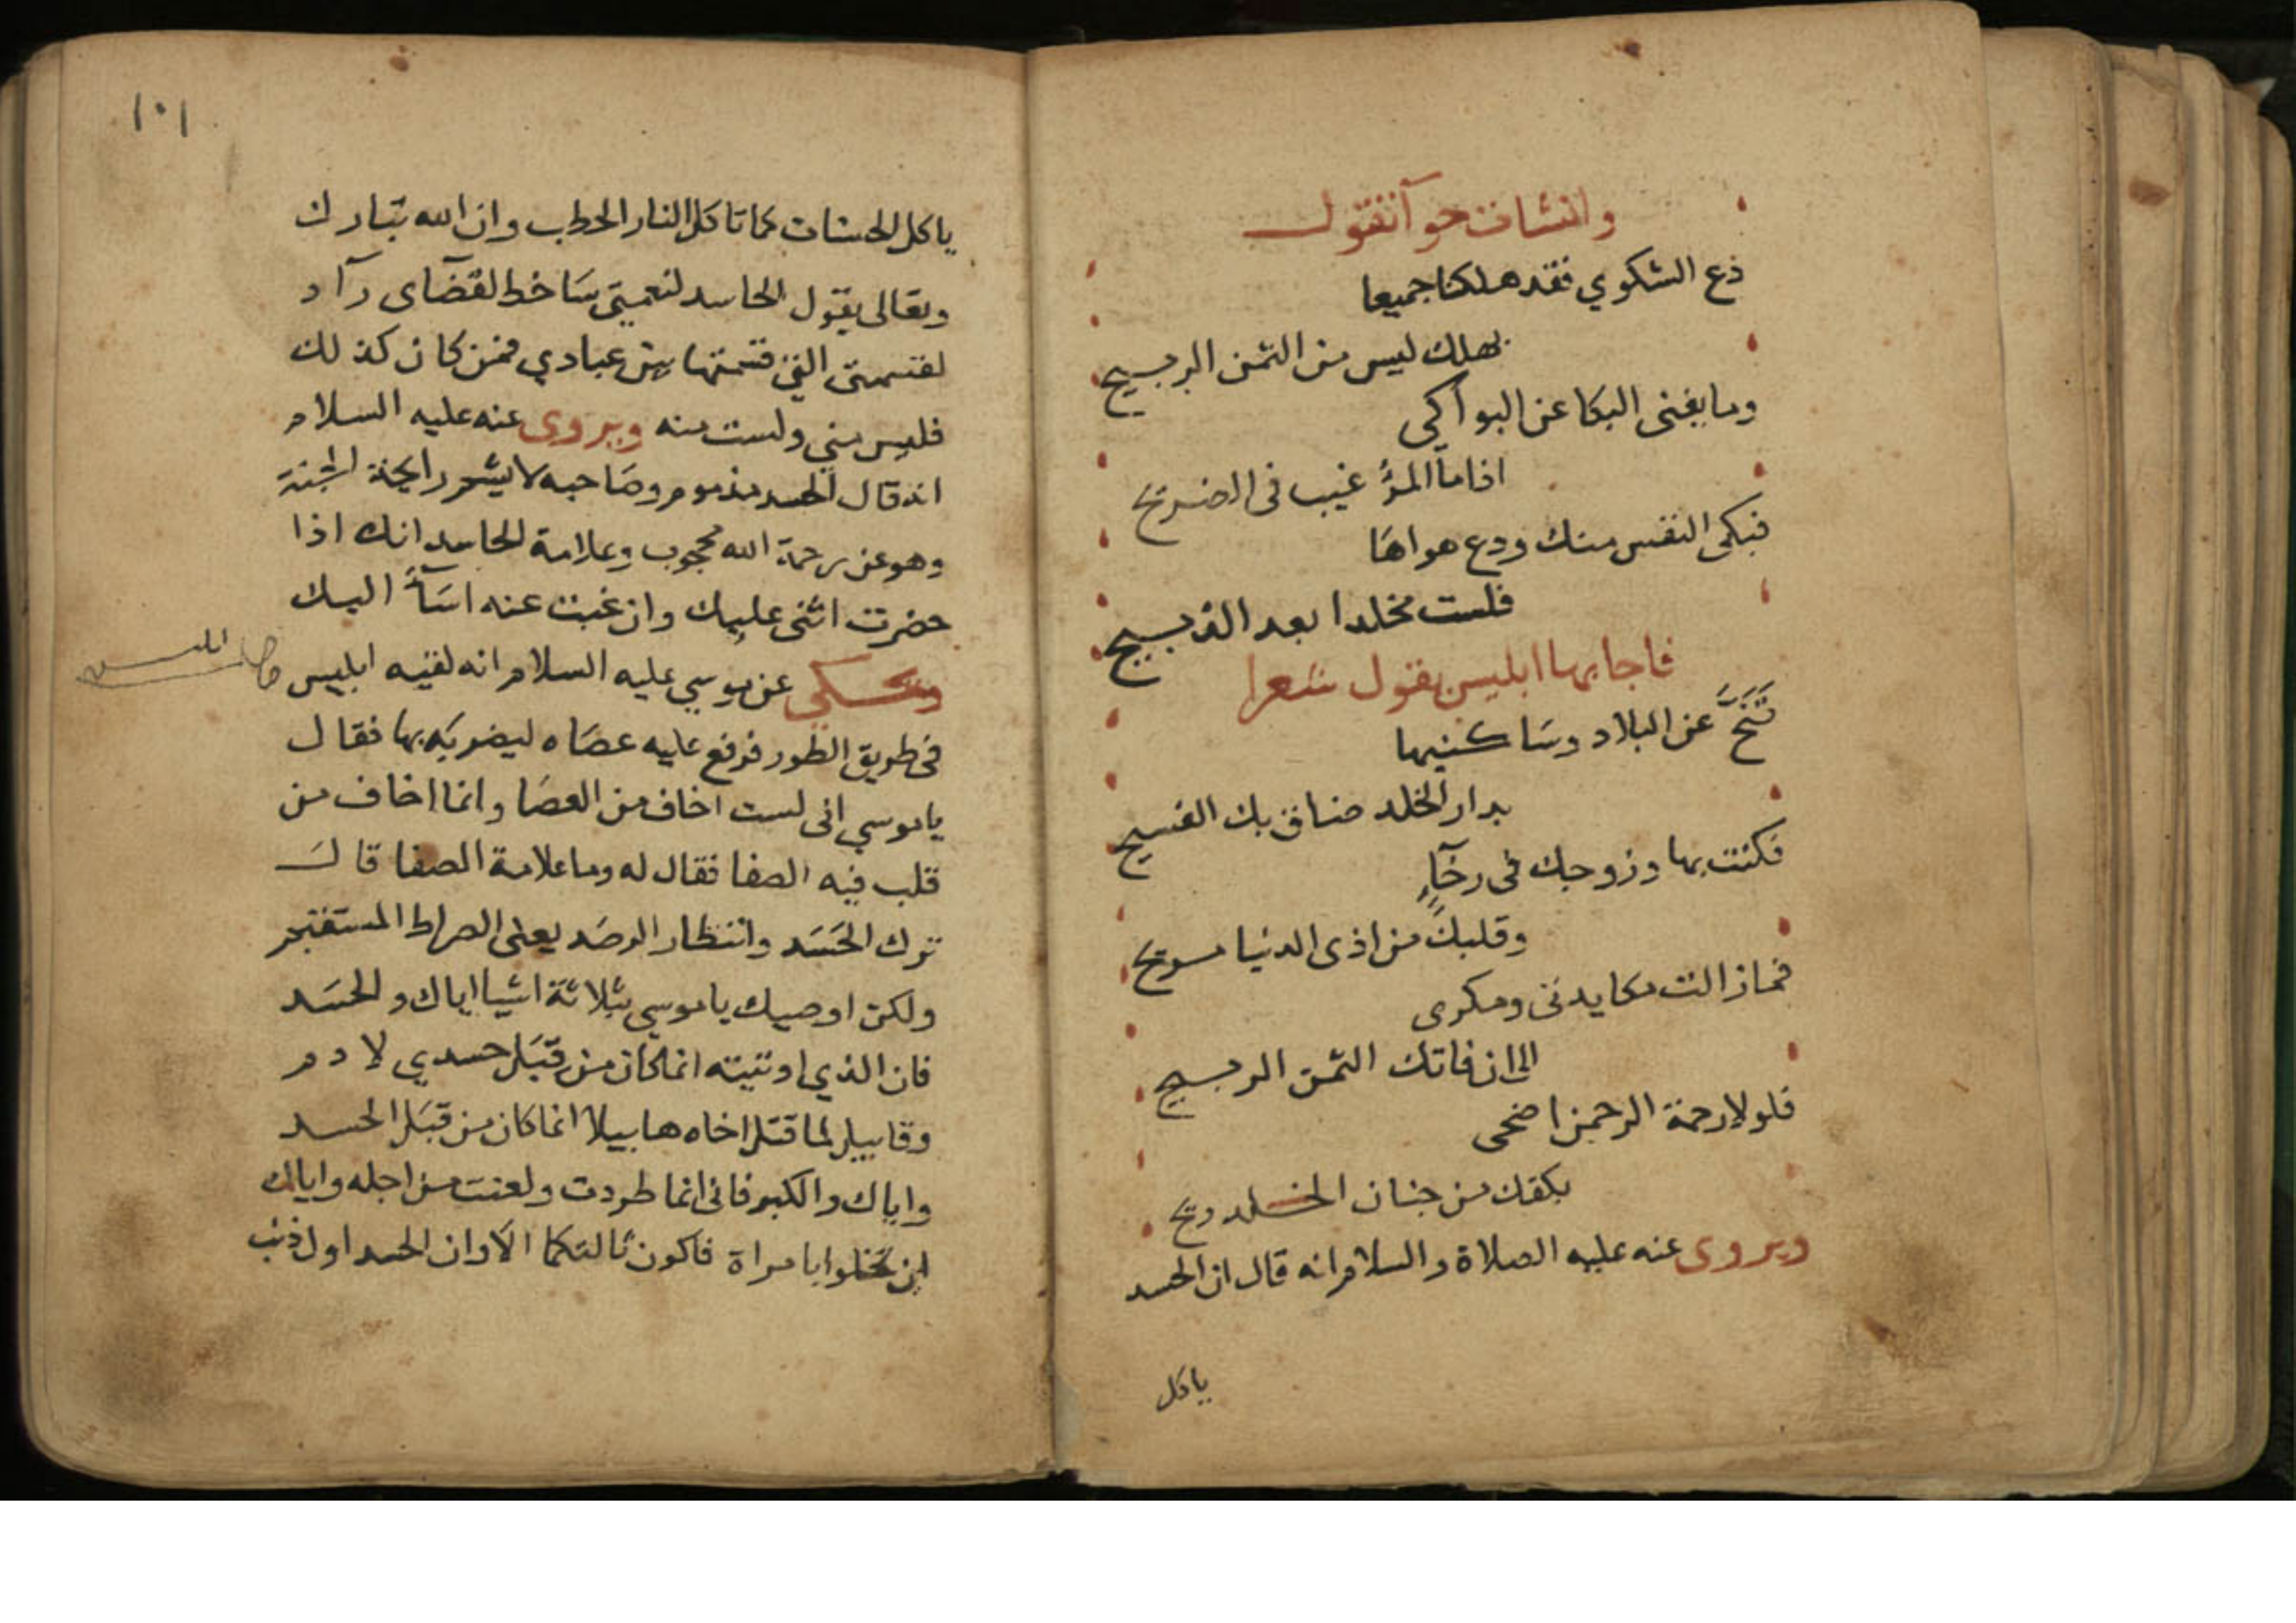 وانشات حوآ تقول
دع الشكوي فقد هلكنا جميعا
بهلك ليس من الثمن الربيح
وما يغنى البكا عن البواكي
اذا ما المرؤ غيب فى الضريح
فبكى النفس منك ودع هواها
فلست مخلدا بعد الذبيح
فاجابها ابليس يقول شعرا
تَنَحَّ عن البلاد وسَاكنيها
بدار الخلد ضاق بك الفسيح
فكنت بها وزوجك فى رخآءٍ
وقلبك من اذى الدنيا مريح
فما زالت مكايدتى ومكرى
الى ان فاتك الثمن الربيح
فلولا رحمة الرحمن اضحى
بكفك من جنان الخلد ريح
ويروى عنه عليه الصلاة والسلام انه قال ان الحسد
ياكل
١٠١
ياكل الحسنات كما تاكل النار الحطب وان الله تبارك
وتعالى يقول الحاسد لنعمتى سَاخط لقضآى رآد
لقسمتى التى قسمتها بين عبادي فمن كان كذلك
فليس مني ولست منه ويروى عنه عليه السلام
انه قال الحسد مذموم وصَاحبه لا يشم رايحة الجنة
وهو عن رحمة الله محجوب وعلامة الحاسد انك اذا
حضرت اثنى عليك وان غبت عنه اسَآء اليك
وحكي عن موسي عليه السلام انه لقيه ابليس
ابليس
فى طريق الطور فرفع عليه عصَاه ليضربَه بها فقال
يا موسي انى لست اخاف من العصَا وانما اخاف من
قلب فيه الصفا فقال له وما علامة الصفا قال
ترك الحَسَد وانتظار الرصَد يعنى الصراط المستقيم
ولكن اوصيك يا موسي بثلاثة اشيا اياك والحسَد
فان الذي اوتيته انما كان من قبَل حسدي لادم
وقابيل لما قتل اخاه هابيلا انما كان من قبَل الحسد
واياك والكبر فانى انما طردت ولعنت من اجله واياك
ان تخلوا بامراة فاكون ثالثكما الا وان الحسد اول ذنب